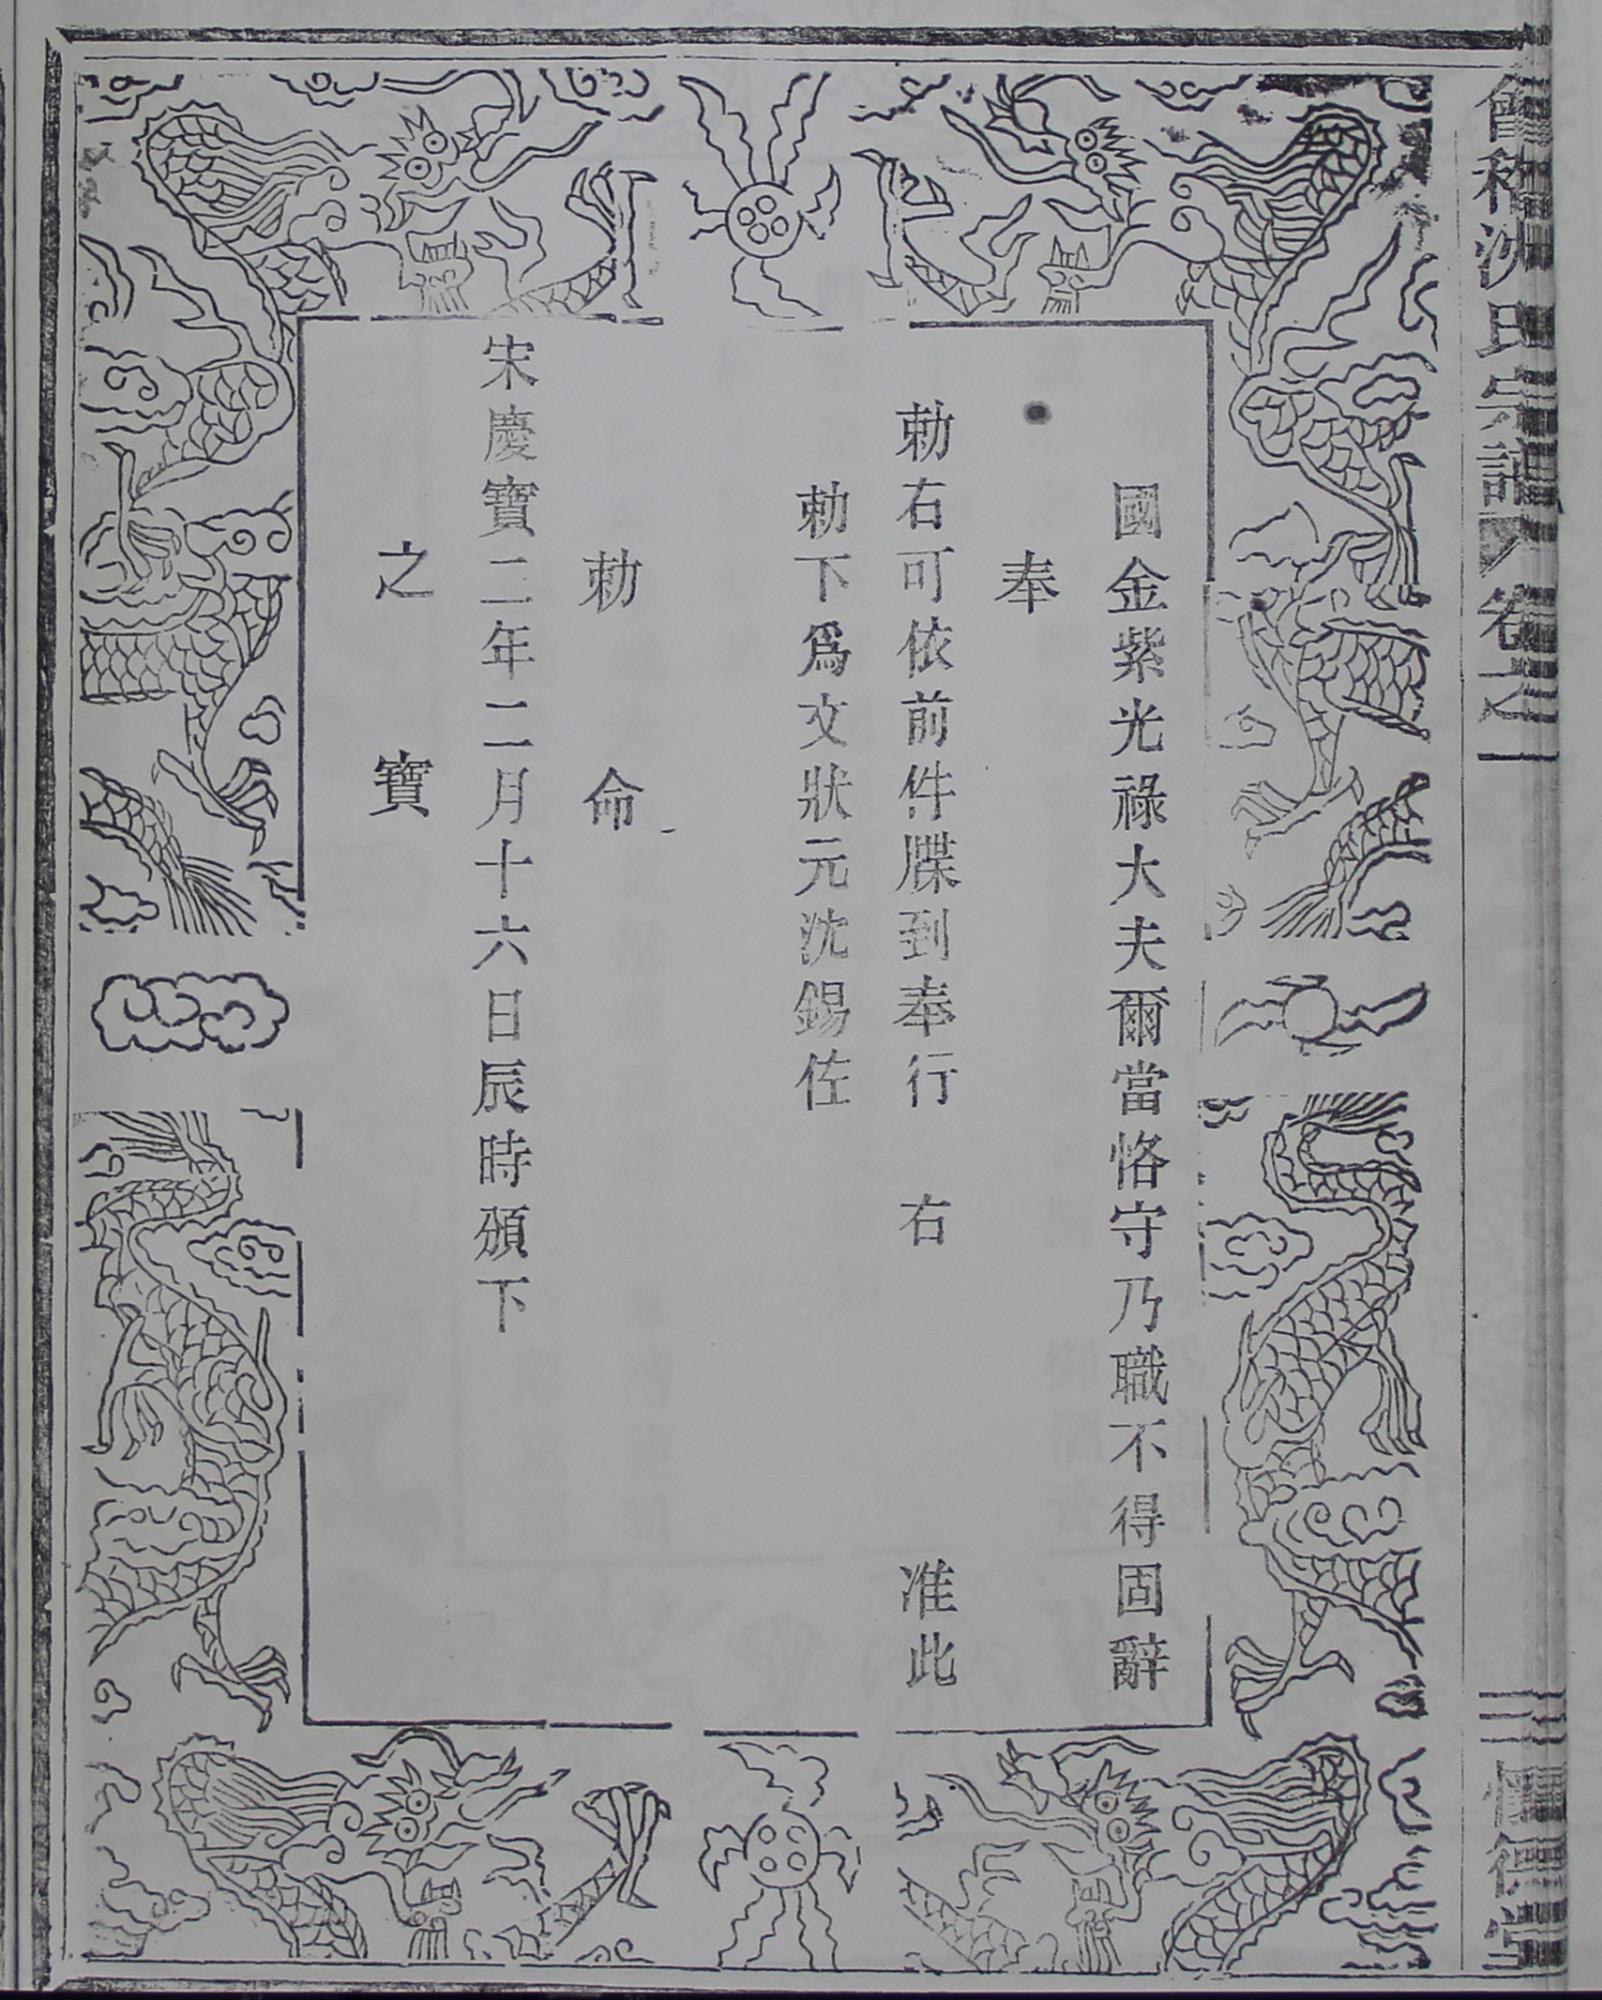 會稽沈氏宗譜 卷之一
國金紫光祿大夫爾當恪守乃職不得固辭
奉
勅右可依前件牒到奉行 右 准此
勅下爲文狀元沈錫佐
勅命
宋慶寶二年二月十六日辰時頒下
之寶